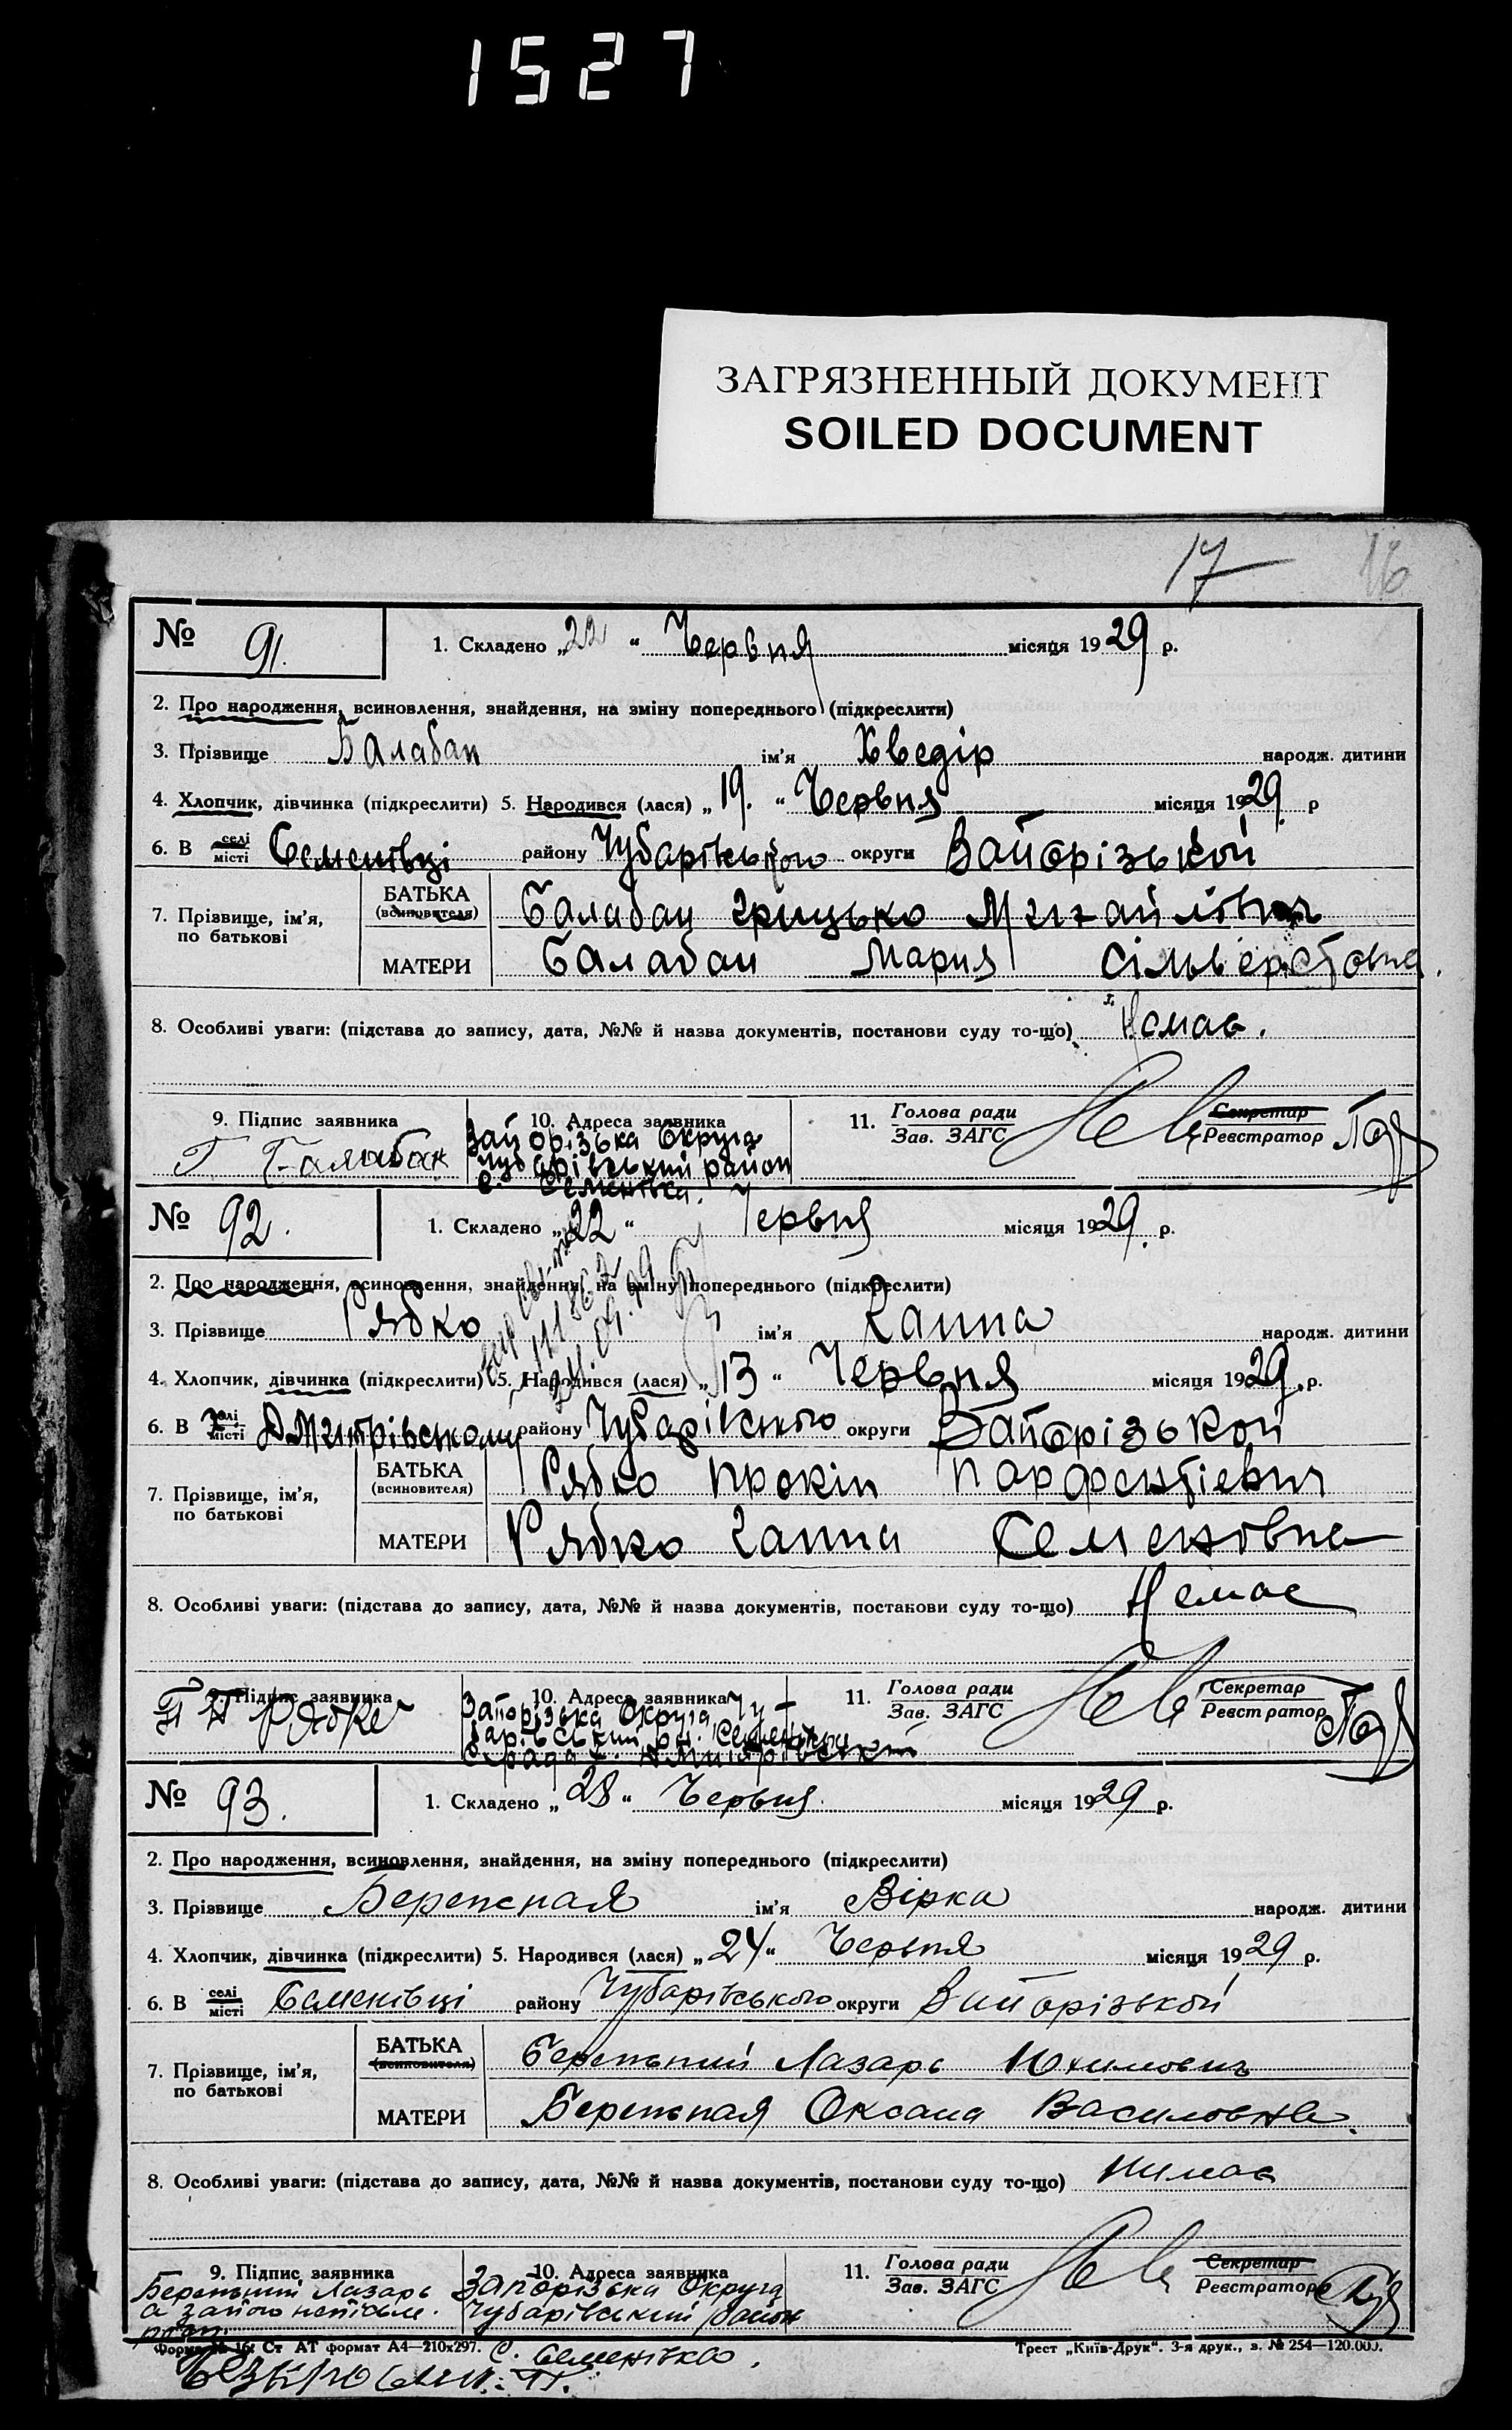 1527
ЗАГРЯЗНЕННЫЙ ДОКУМЕНТ
SOILED DOCUMENT
17 16
№ 91. 1. Складено „22“ Червня місяця 1929 р.
2. Про народження, всиновлення, знайдення, на зміну попереднього (підкреслити)
3. Прізвище Балабан ім'я Хведір народж. дитини
4. Хлопчик, дівчинка (підкреслити) 5. Народився (лася) „19.“ Червня місяця 1929 р
6. В селі місті Семенівці району Чубарівського округи Запорізької
7. Прізвище, ім'я, по батькові БАТЬКА (всиновителя) Балабан Грицько Михайлович
МАТЕРИ Балабан Мария Сільверстовна.
8. Особливі уваги: (підстава до запису, дата, №№ й назва документів, постанови суду то-що) Немає.
9. Підпис заявника 10. Адреса заявника 11. Голова ради Зав. ЗАГС Секретар Реєстратор
Г Балабан
Запорізька Округа
Чубарівський район
с. Семенівка.
№ 92. 1. Складено „22“ Червня місяця 1929 р.
2. Про народження, всиновлення, знайдення, на зміну попереднього (підкреслити)
3. Прізвище Рябко ім'я Ганна народж. дитини
4. Хлопчик, дівчинка (підкреслити) 5. Народився (лася) „13“ Червня місяця 1929 р.
6. В х. селі місті Дмитрівському району Чубарівського округи Запорізької
7. Прізвище, ім'я, по батькові БАТЬКА (всиновителя) Рябко Прокіп Парфентієвич
МАТЕРИ Рябко Ганна Семеновна
8. Особливі уваги: (підстава до запису, дата, №№ й назва документів, постанови суду то-що) Немає
9. Підпис заявника 10. Адреса заявника 11. Голова ради Зав. ЗАГС Секретар Реєстратор
П П Рябко
Запорізька Округа Чу-
барівський рн.
№ 93. 1. Складено „28“ Червня місяця 1929 р.
2. Про народження, всиновлення, знайдення, на зміну попереднього (підкреслити)
3. Прізвище Бережная ім'я Вірка народж. дитини
4. Хлопчик, дівчинка (підкреслити) 5. Народився (лася) „24“ Червня місяця 1929 р.
6. В селі місті Семенівці району Чубарівського округи Запорізької
7. Прізвище, ім'я, по батькові БАТЬКА (всиновителя) Бережний Лазарь Юхимович
МАТЕРИ Бережная Оксана Василовна.
8. Особливі уваги: (підстава до запису, дата, №№ й назва документів, постанови суду то-що) Нимає
9. Підпис заявника 10. Адреса заявника 11. Голова ради Зав. ЗАГС Секретар Реєстратор
Бережний Лазарь
а за його
Запорізька Округа
Чубарівський район
с. Семенівка.
Форма № 16 Ст АТ формат А4—210х297. Трест „Київ-Друк“. 3-я друк., з. № 254—120.000.